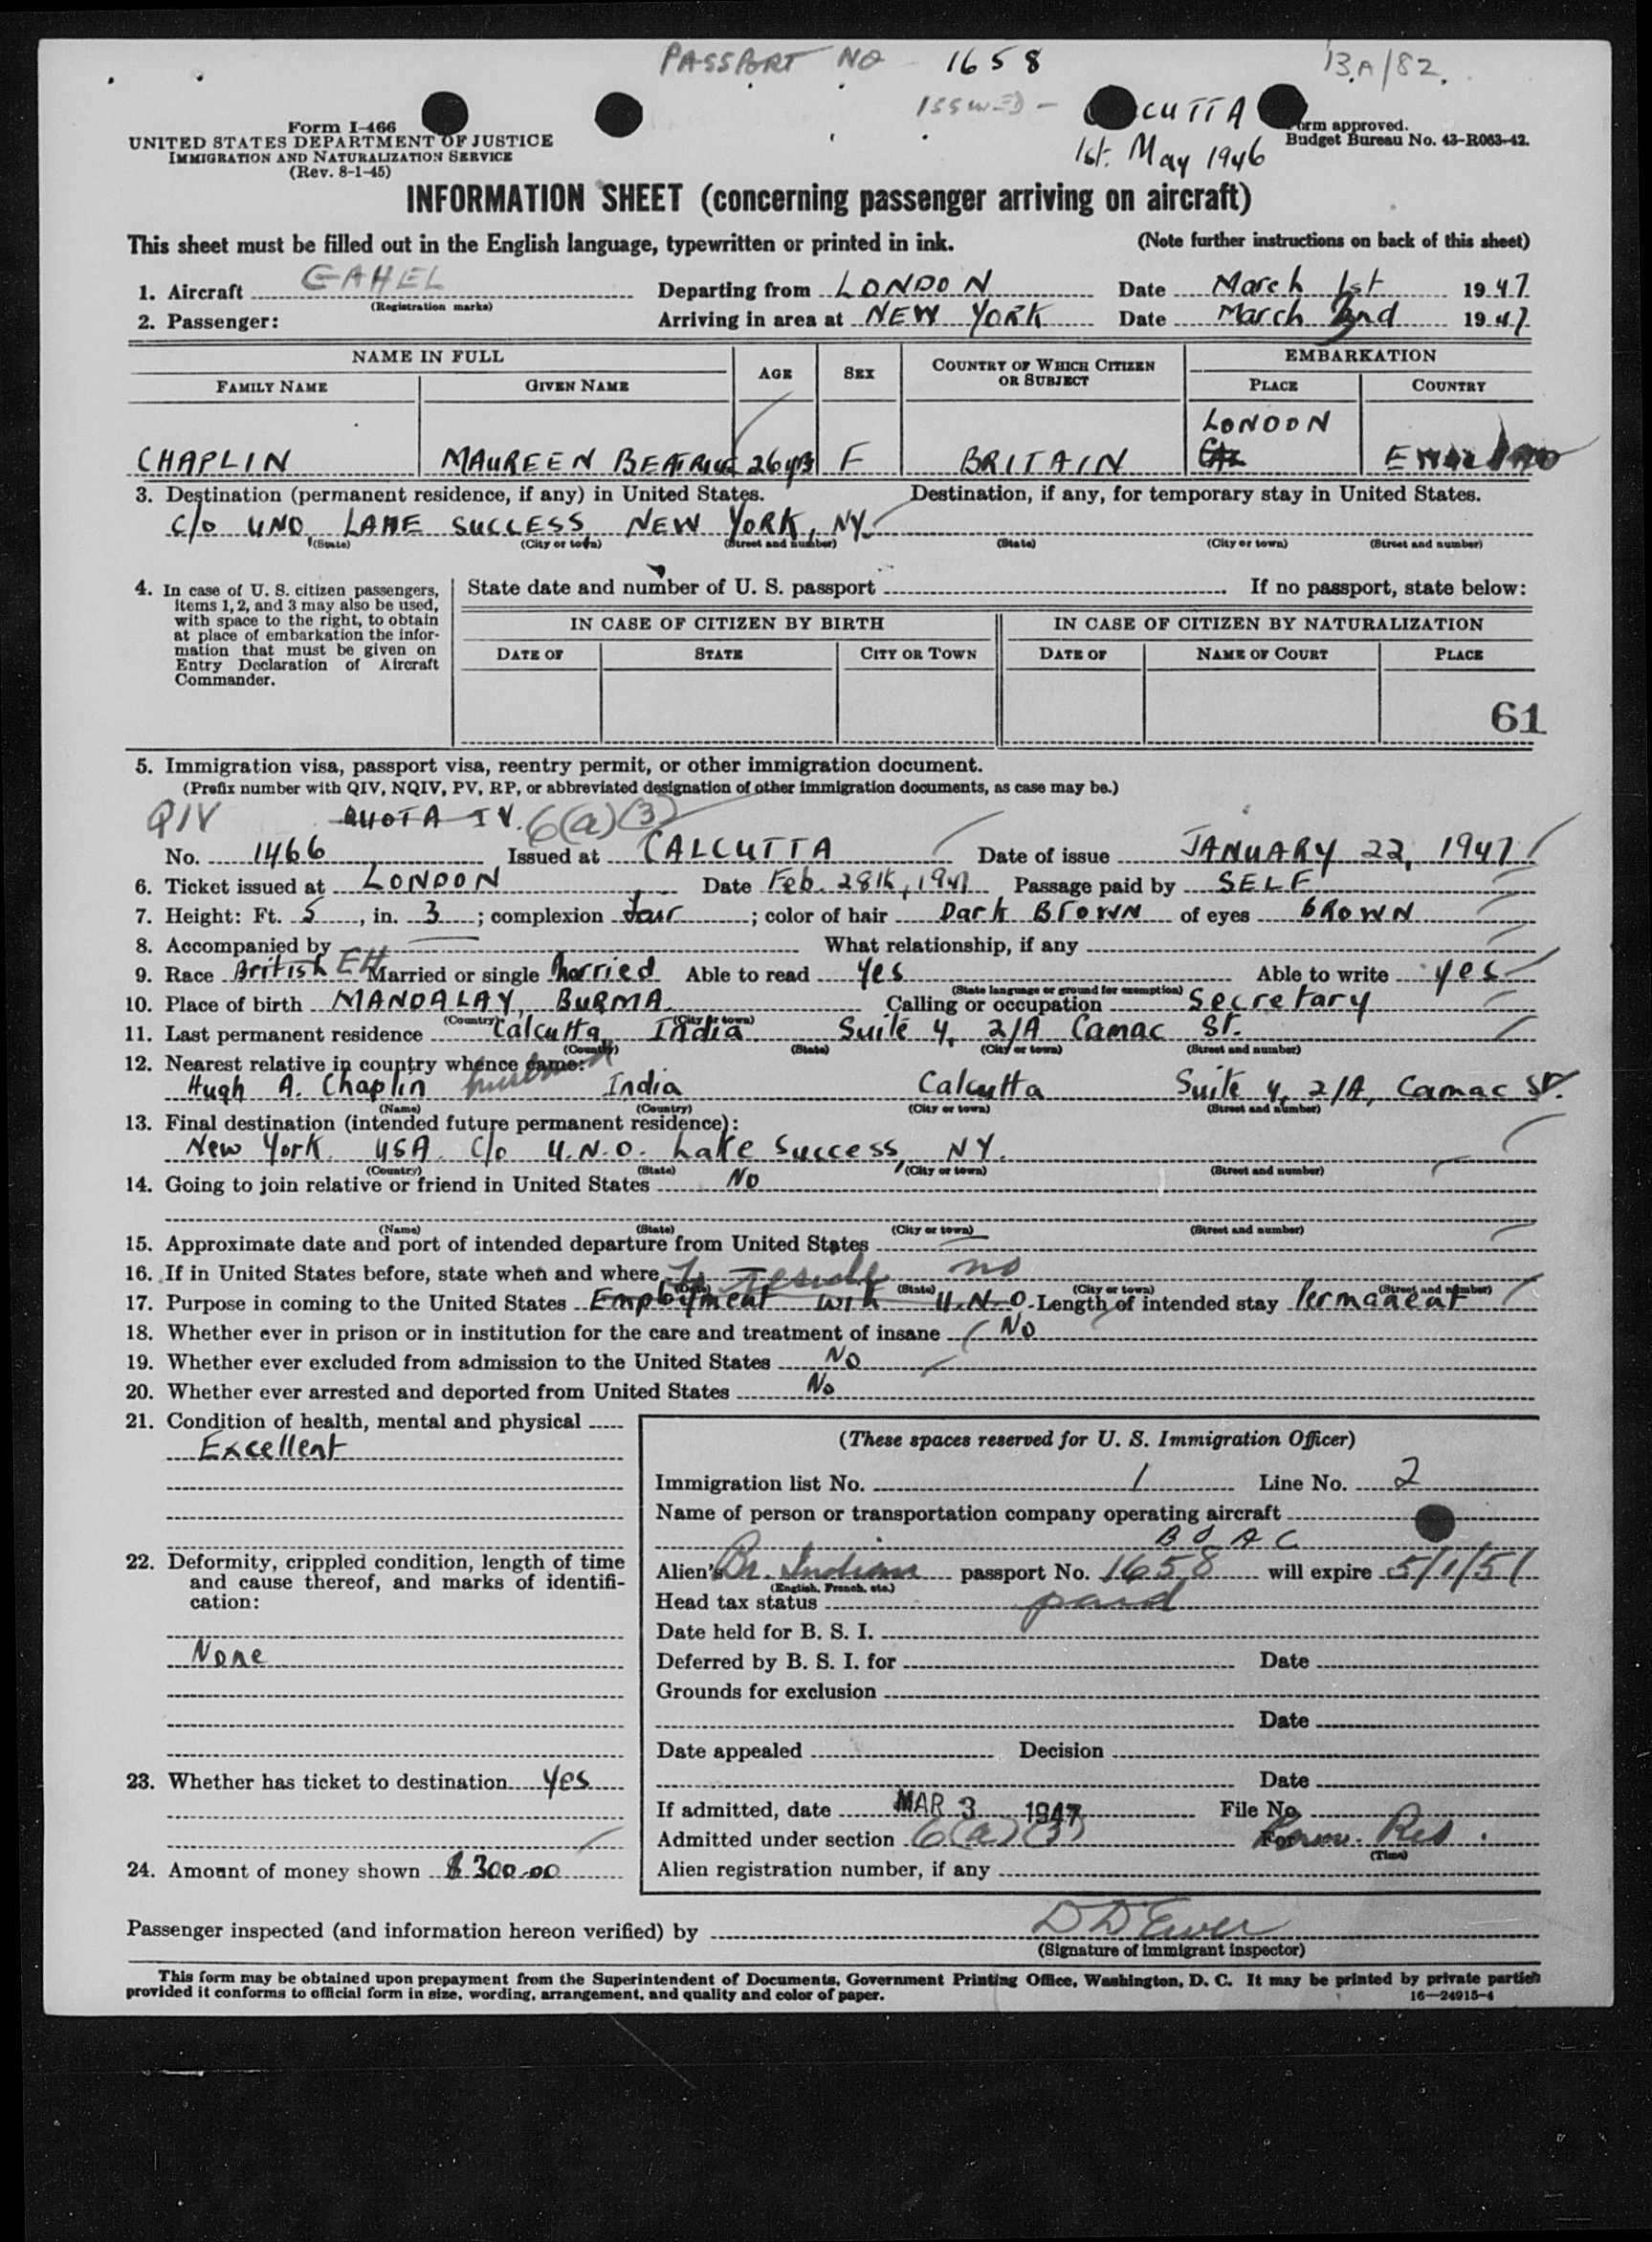 PASSPORT NO - 1658
13.A/82.
ISSUED - CUTTA
1st. May 1946
Form I-466
UNITED STATES DEPARTMENT OF JUSTICE
IMMIGRATION AND NATURALIZATION SERVICE
(Rev. 8-1-45)
Form approved.
Budget Bureau No. 43-R063-42.
INFORMATION SHEET (concerning passenger arriving on aircraft)
This sheet must be filled out in the English language, typewritten or printed in ink. (Note further instructions on back of this sheet)
1. Aircraft GAHEL Departing from LONDON Date March 1st 1947
(Registration marks)
2. Passenger: Arriving in area at NEW YORK Date March 3nd 1947
NAME IN FULL AGE SEX COUNTRY OF WHICH CITIZEN OR SUBJECT EMBARKATION
FAMILY NAME GIVEN NAME PLACE COUNTRY
LONDON
CHAPLIN MAUREEN BEATRICE 26 yrs F BRITAIN
3. Destination (permanent residence, if any) in United States. Destination, if any, for temporary stay in United States.
c/o UNO LAKE SUCCESS NEW YORK, NY.
(State) (City or town) (Street and number) (State) (City or town) (Street and number)
4. In case of U. S. citizen passengers, items 1, 2, and 3 may also be used, with space to the right, to obtain at place of embarkation the information that must be given on Entry Declaration of Aircraft Commander.
State date and number of U. S. passport If no passport, state below:
IN CASE OF CITIZEN BY BIRTH IN CASE OF CITIZEN BY NATURALIZATION
DATE OF STATE CITY OR TOWN DATE OF NAME OF COURT PLACE
61
5. Immigration visa, passport visa, reentry permit, or other immigration document.
(Prefix number with QIV, NQIV, PV, RP, or abbreviated designation of other immigration documents, as case may be.)
QIV QUOTA IV. 6(a)(3)
No. 1466 Issued at CALCUTTA Date of issue JANUARY 22, 1947
6. Ticket issued at LONDON Date Feb. 28th, 1947 Passage paid by SELF
7. Height: Ft. 5, in. 3; complexion fair; color of hair Dark BROWN of eyes BROWN
8. Accompanied by What relationship, if any
9. Race British EH Married or single Married Able to read Yes Able to write yes
(State language or ground for exemption)
10. Place of birth MANDALAY, BURMA Calling or occupation Secretary
(Country) (City or town)
11. Last permanent residence Calcutta, India Suite 4, 2/A Camac St.
(Country) (State) (City or town) (Street and number)
12. Nearest relative in country whence came:
Hugh A. Chaplin husband India Calcutta Suite 4, 2/A, Camac St.
(Name) (Country) (City or town) (Street and number)
13. Final destination (intended future permanent residence):
New York USA. c/o U.N.O. Lake Success, NY.
(Country) (State) (City or town) (Street and number)
14. Going to join relative or friend in United States No
(Name) (State) (City or town) (Street and number)
15. Approximate date and port of intended departure from United States
16. If in United States before, state when and where no
To reside
(Date) (State) (City or town) (Street and number)
17. Purpose in coming to the United States Employment with U.N.O. Length of intended stay Permanent
18. Whether ever in prison or in institution for the care and treatment of insane No
19. Whether ever excluded from admission to the United States No
20. Whether ever arrested and deported from United States No
21. Condition of health, mental and physical
Excellent
22. Deformity, crippled condition, length of time and cause thereof, and marks of identification:
None
23. Whether has ticket to destination Yes
24. Amount of money shown $300.00
(These spaces reserved for U. S. Immigration Officer)
Immigration list No. 1 Line No. 2
Name of person or transportation company operating aircraft
BOAC
Alien's Br. Indian passport No. 1658 will expire 5/1/51
(English, French, etc.)
Head tax status paid
Date held for B. S. I.
Deferred by B. S. I. for Date
Grounds for exclusion
Date
Date appealed Decision
Date
If admitted, date MAR 3 1947 File No.
Admitted under section 6(a)(3) For Perm. Res.
(Time)
Alien registration number, if any
Passenger inspected (and information hereon verified) by D D Ewer
(Signature of immigrant inspector)
This form may be obtained upon prepayment from the Superintendent of Documents, Government Printing Office, Washington, D. C. It may be printed by private parties
provided it conforms to official form in size, wording, arrangement, and quality and color of paper. 16—24915-4